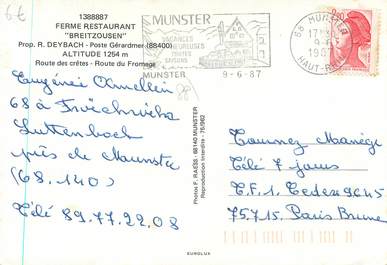 6€
1388887
FERME RESTAURANT
"BREITZOUSEN"
Prop. R. DEYBACH - Poste Gérardmer (88400)
ALTITUDE 1254 m
Route des crêtes - Route du Fromage
MUNSTER
VACANCES
HEUREUSES
TOUTES
SAISONS
MUNSTER 9-6-87
68 MUNSTER
17 H
9-6
HAUT-RHIN
Eugénie
68 à
Luttenbach
près de Munster
(68.140)
Télé 89.77.22.08
Photos P. RAESS - 68140 MUNSTER
Reproduction Interdite - 75/962
Tournez Manège
Télé 7 jours
T.F.1. Cedex 9045
75.715. Paris Brune
EUROLUX